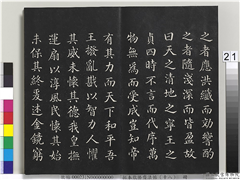 之者應洪纖而効響酌
之者隨淺深而皆盈故
曰天之清地之寧王之
貞四時不言而代序萬
物無為而受成豈知帝
有其力而天下和平吾
王撥亂戡以智力人懼
其威未懷其德我皇撫
運扇以淳風民懷其始
未保其終爰述金鏡窮
21